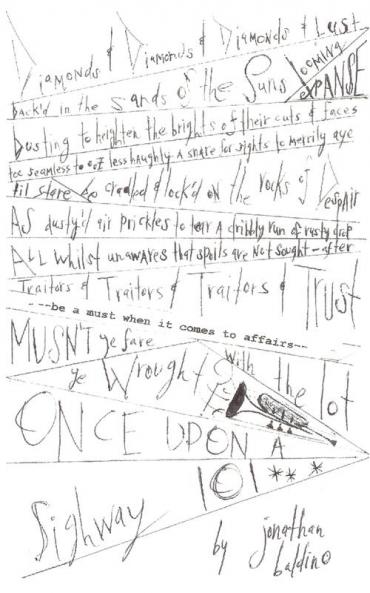 Diamonds & Diamonds & Diamonds & Lust
back'd in the sands of the Suns looming EXPANSE
Dusting to heighten the brights of their cuts & faces
too seamless to eof less haughly a snare for sights to merrily aye
til stare so cradled & lock'd on the rocks of Despair
AS dusty'd air prickles to tear A dribbly run of rusty drop
ALL whilst unawares that spoils are Not sought-after
Traitors & Traitors & Traitors & Trust
---be a must when it comes to affairs--
MUSN'T ye fare
ye Wrought with the lot
ONCE UPON A
101***
Sighway
by jonathan
baldino